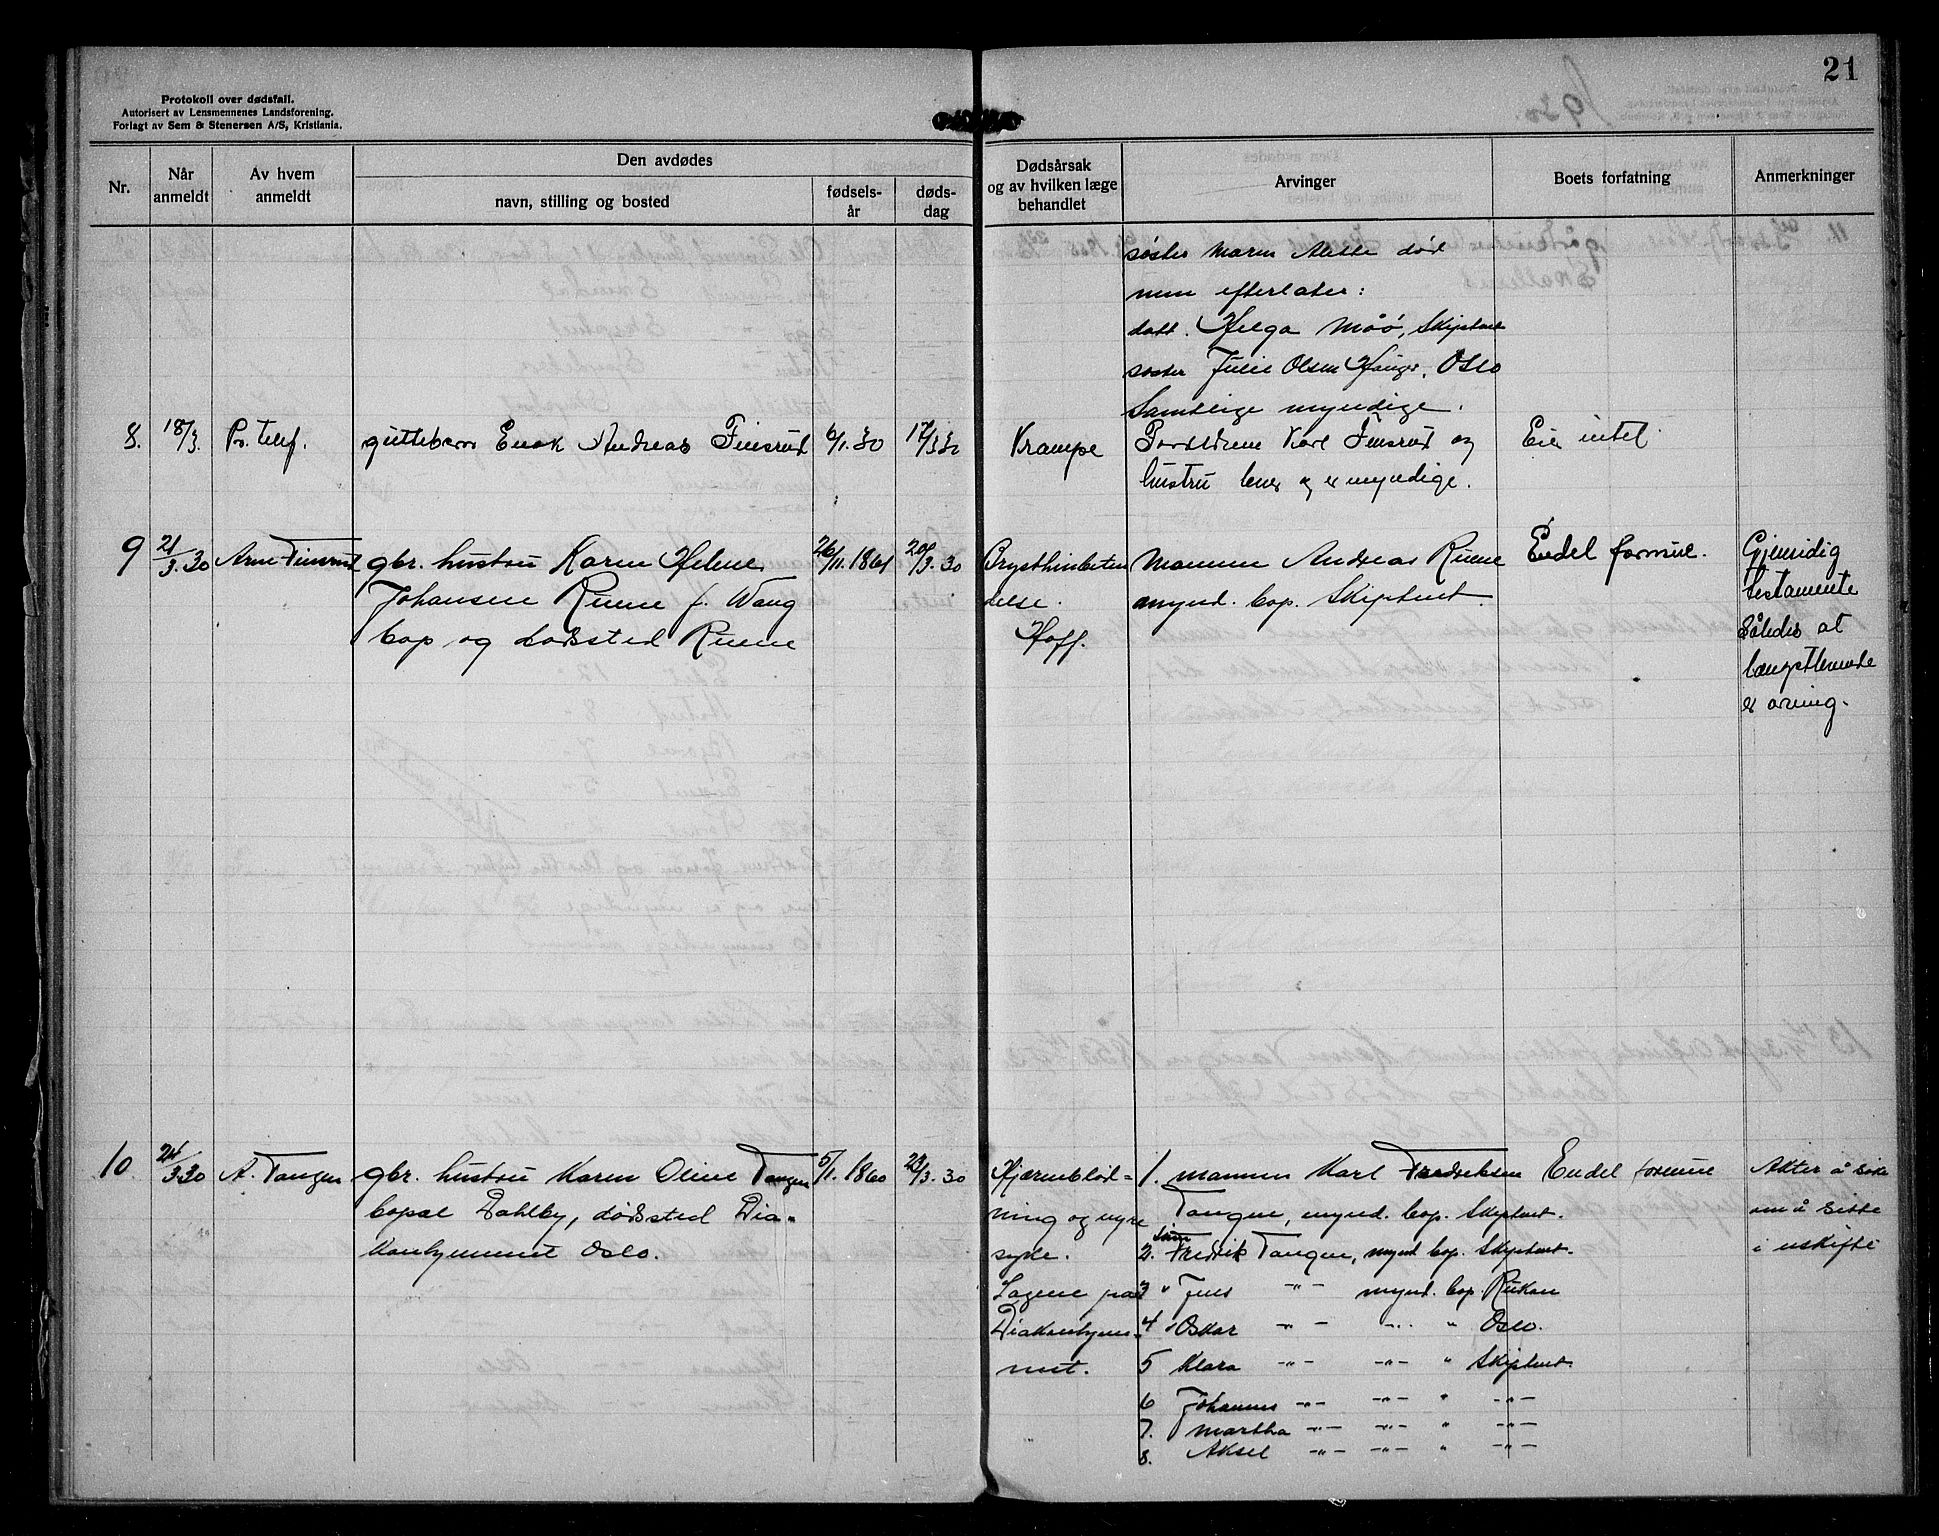 21
1930.
Protokoll over dødsfall.
Autorisert av Lensmennenes Landsforening.
Forlagt av Sem & Stenersen A/S, Kristiania.
Nr.
Når
anmeldt
Av hvem
anmeldt
Den avdødes
navn, stilling og bosted
fødsels-
år
døds-
dag
Dødsårsak
og av hvilken læge
behandlet
Arvinger
Boets forfatning
Anmerkninger
søster Maren Alette død
men efterlater:
datt. Helga Møó, Skiptvet
søster Julie Olsen Hauger, Oslo
Samtlige myndige.
8. 18/3. Pr. telf. guttebarn Enok Andreas Finsrud 6/1.30 17/3 30 Krampe Forældrene Karl Finsrud og Eier intet.
hustru lever og er myndige.
9 21/3.30 Arne Finsrud gbr. hustru Karen Helene 26/11.1861 20/3.30 Brysthinbeten Mannen Andreas Ruene Endel formue. Gjensidig
Johansen Ruene f. Wang delse. mynd. bop. Skiptvet. testamente
bop og dødssted Ruene Hoff. således at
længstlevende
er arving.
10 24/3.30 A. Tangen gbr. hustru Karen Oline Tangen 5/1.1860 23/3.30 Hjærneblød- 1. mannen Karl Fredriksen Endel formue Akter å søke
bopæl Dahlby, dødssted Dia- ning og nyre Tangen, mynd. bop. Skiptvet. om å sitte
konhjemmet Oslo. syke. 2. sønn Fredrik Tangen, mynd bop. Skiptvet. i uskifte
Lægene på 3 " Jens -"- mynd. bop. Rukan
Diakonhjem- 4 " Oskar -"- -"- " Oslo.
met. 5 Klara -"- -"- " Skiptvet.
6 Johannes -"- -"- " -"-
7. Martha -"- -"- " -"-
8. Aksel -"- -"- " -"-